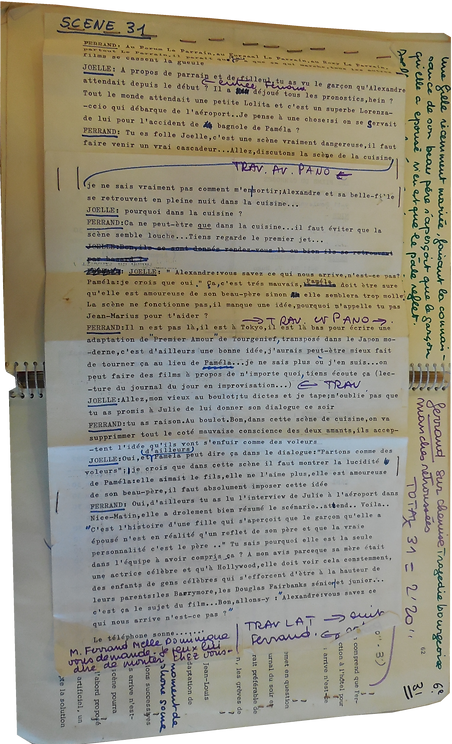 SCENE 31
FERRAND: Au
films se cassent la gueule
JOELLE: A propos de parrain et de filleul, tu as vu le garçon qu'Alexandre
attendait depuis le début ? Il a déjoué tous les pronostics, hein ?
Tout le monde attendait une petite Lolita et c'est un superbe Lorenza-
-ccio qui débarque de l'aéroport..Je pense à une chose: si on se servait
de lui pour l'accident de bagnole de Paméla?
FERRAND: Tu es folle Joelle, c'est une scène vraiment dangereuse, il faut
faire venir un vrai cascadeur...Allez, discutons la scène de la cuisine
TRAV. AV. PANO
je ne sais vraiment pas comment m'en sortir; Alexandre et sa belle-fille
se retrouvent en pleine nuit dans la cuisine...
JOELLE: pourquoi dans la cuisine ?
FERRAND: Ca ne peut-être que dans la cuisine...il faut éviter que la
scène semble louche...Tiens regarde le premier jet...
JOELLE: "Alexandre: vous savez ce qui nous arrive, n'est-ce pas?
Paméla: je crois que oui." Ça, c'est très mauvais, Paméla doit être sure
qu'elle est amoureuse de son beau-père sinon elle semblera trop molle
La scène ne fonctionne pas, il manque une idée, pourquoi n'appelle tu pas
Jean-Marius pour t'aider ?
FERRAND: Il n'est pas là, il est à Tokyo, il est là bas pour écrire une
adaptation de "Premier Amour" de Tourgenief, transposé dans le Japon mo-
-derne, c'est d'ailleurs une bonne idée, j'aurais peut-être mieux fait
de tourner ça au lieu de Paméla...je ne sais plus où j'en suis...on
peut faire des films à propos de n'importe quoi, tiens écoute ça (lec-
-ture du journal du jour en improvisation...) TRAV
JOELLE: Allez, mon vieux au boulot; tu dictes et je tape; n'oublie pas que
tu as promis à Julie de lui donner son dialogue ce soir
FERRAND: tu as raison. Au boulot. Bon, dans cette scène de cuisine, on va
supprimer tout le coté mauvaise conscience des deux amants, ils accep-
-tent l'idée qu'ils vont s'enfuir comme des voleurs
JOELLE: Oui, (d'ailleurs) peut dire ça dans le dialogue: "Partons comme des
voleurs"; je crois que dans cette scène il faut montrer la lucidité
de Paméla: elle aimait le fils, elle ne l'aime plus, elle est amoureuse
de son beau-père, il faut absolument imposer cette idée
FERRAND: Oui, d'ailleurs as tu lu l'interview de Julie à l'aéroport dans
Nice-Matin, elle a drolement bien résumé le scénario..attend.. Voila..
"C'est l'histoire d'une fille qui s'aperçoit que le garçon qu'elle a
épousé n'est en réalité qu'un reflet de son père et que la vraie
personnalité c'est le père .." Tu sais pourquoi elle est la seule
dans l'équipe à avoir compris ça ? A mon avis parceque sa mère était
une actrice célèbre et qu'à Hollywood, elle doit voir cela constement,
des enfants de gens célèbres qui s'efforcent d'être à la hauteur de
leurs parents: les Barrymore, les Douglas Fairbanks sénior et junior...
c'est ça le sujet du film...Bon, allons-y : "Alexandre: vous savez ce
qui nous arrive n'est-ce pas ?"
Le téléphone sonne......
TRAV LAT → suit
Ferrand.
M. Ferrand Melle Dominique
vous demande:
Une fille récemment mariée, faisant la connais-
sance de son beau père s'aperçoit que le garçon
qu'elle a épousé n'en est que le pâle reflet
Ferrand sur chemise Tragédie bourgeoise
manches retroussées
TOTAL 31 = 2'20"
62
31
Jean-Louis